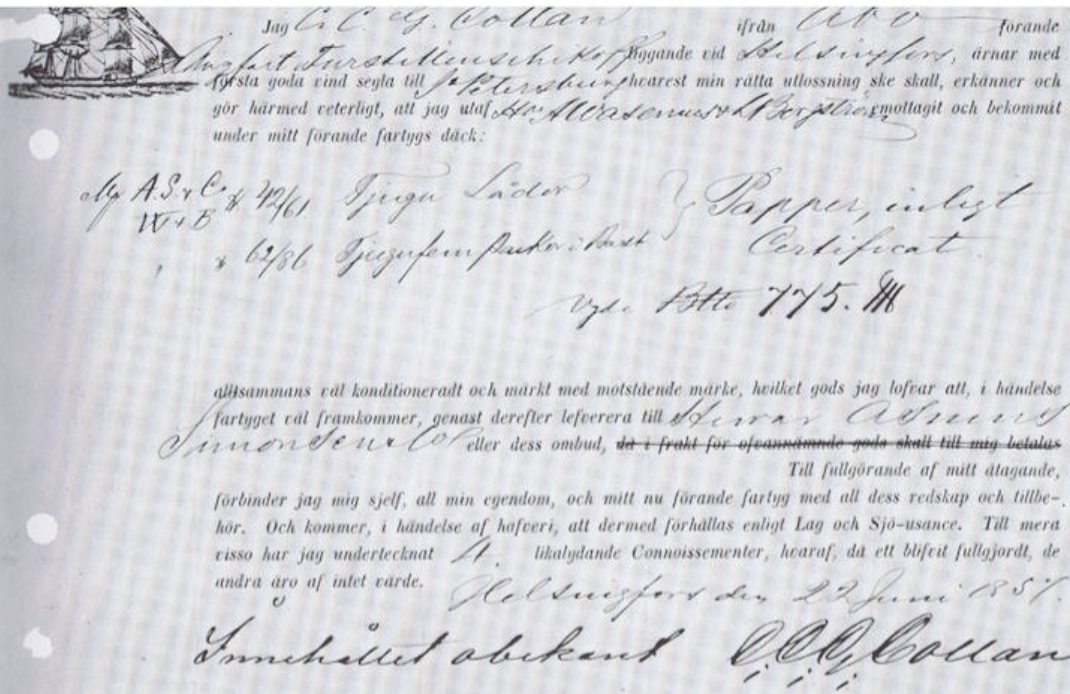 Jag C. C. G. Collan ifrån Åbo förande
Ångfart. Furst Menschikoff liggande vid Helsingfors, ärnar med
första goda vind segla till St Petersburg hvarest min rätta utlossning ske skall, erkänner och
gör härmed veterligt, att jag utaf Hrr Wasenius & Bergström emottagit och bekommit
under mitt förande fartygs däck:
A.S. & C. 42/61 Tjugu Lådor Papper, enligt
W & B
62/86 Tjugufem Certificat
Btto 775.
alltsammans väl konditioneradt och märkt med motstående märke, hvilket gods jag lofvar att, i händelse
fartyget väl framkommer, genast derefter lefverera till Herrar Asmus
Simonsen & Co eller dess ombud, då i frakt för ofvannämnde gods skall till mig betalas
Till fullgörande af mitt åtagande,
förbinder jag mig sjelf, all min egendom, och mitt nu förande fartyg med all dess redskap och tillbe-
hör. Och kommer, i händelse af hafveri, att dermed förhållas enligt Lag och Sjö-usance. Till mera
visso har jag undertecknat 4 likalydande Connoissementer, hvaraf, då ett blifvit fullgjordt, de
andra äro af intet värde.
Helsingfors den 22 Juni 1851.
Innehållet obekant C. C. G. Collan